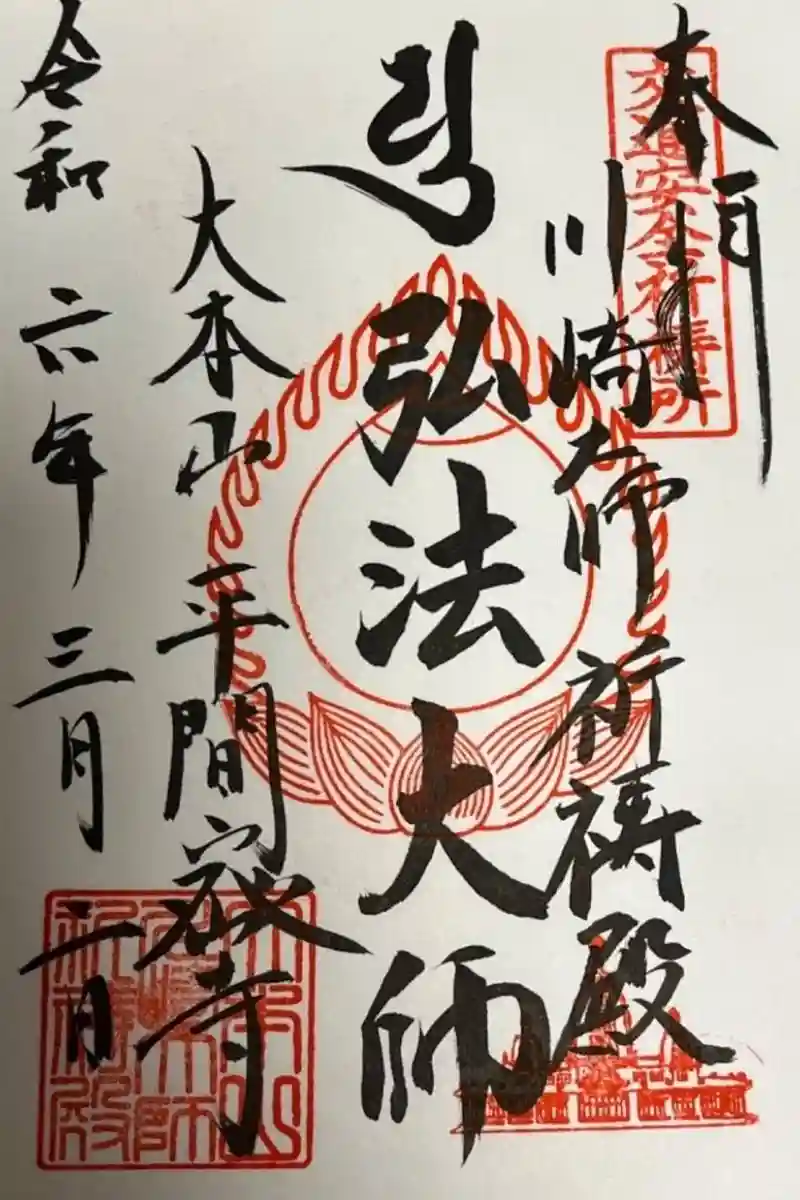 奉拝
交通安全祈祷所
川崎大師 祈祷殿
弘法大師
大本山 平間密寺
令和六年三月二日
大本山
川崎大師
祈祷殿